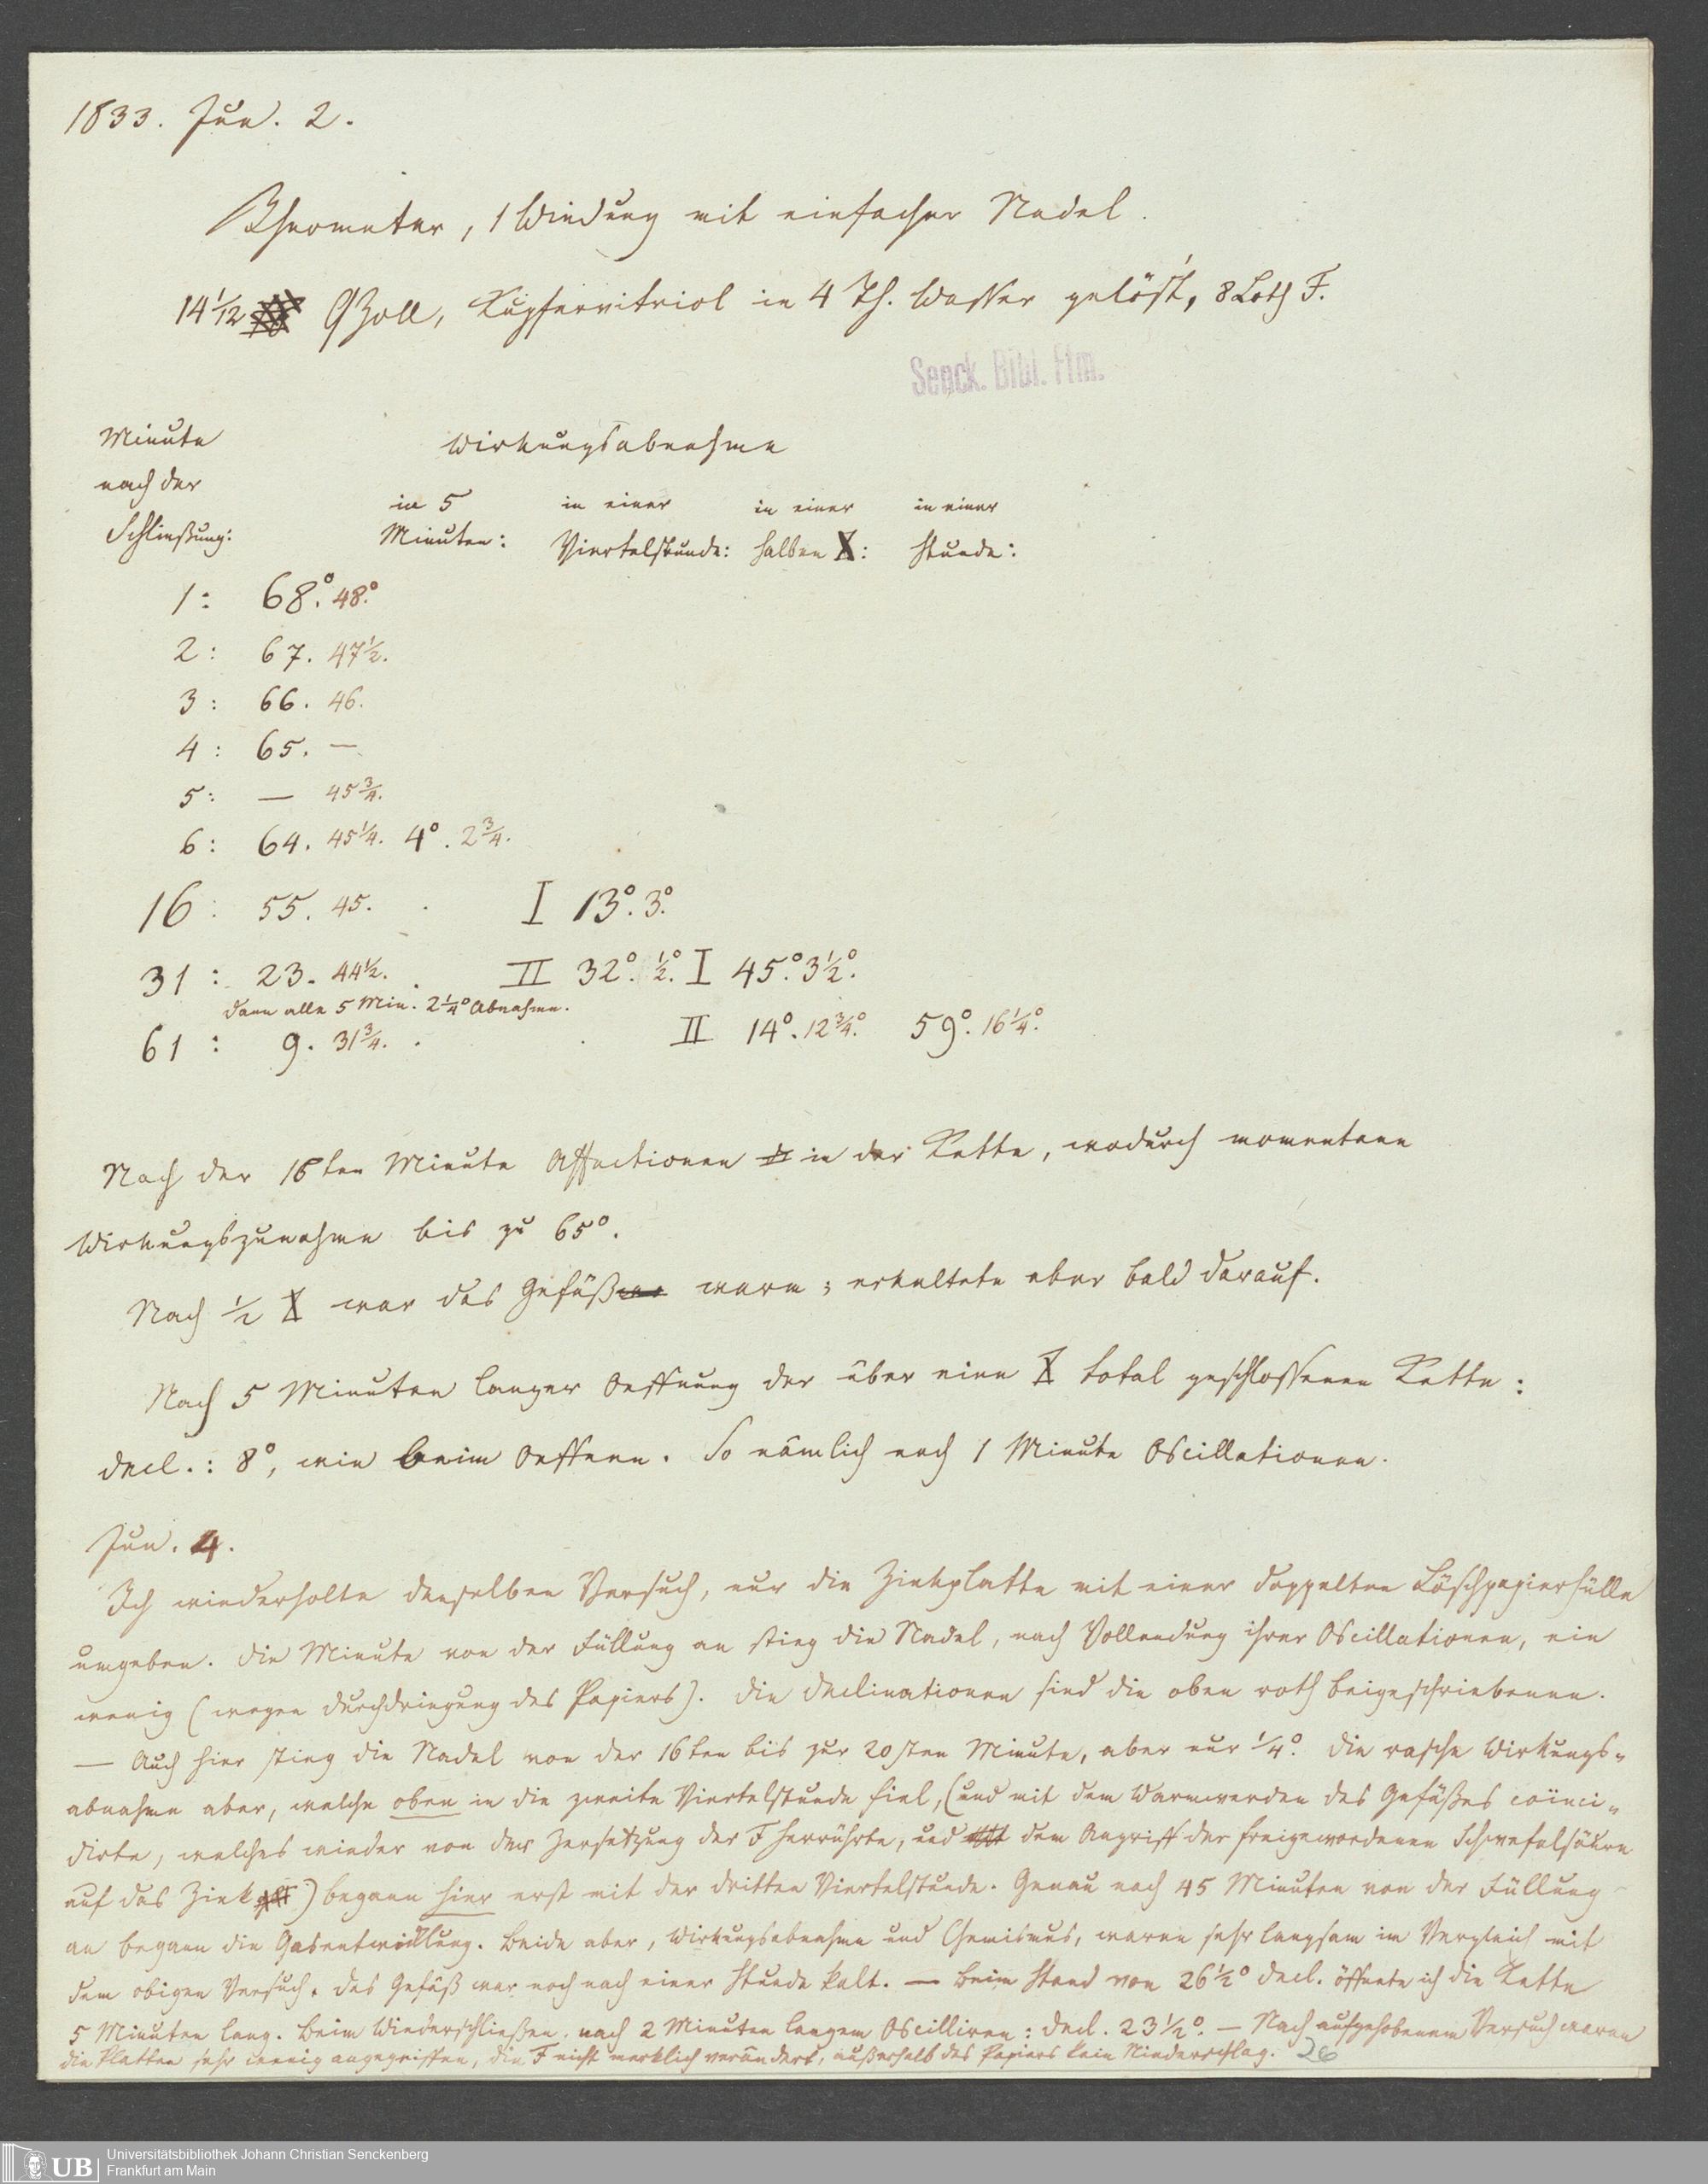 1833. Jun. 2.
Rheometer, 1 Windung mit einfacher Nadel.
14 1/12 QZoll, Kupfervitriol in 4 Th. Wasser gelöst, 8 Loth F.
Senck. Bibl. Ffm.
Minute Wirkungsabnahme
nach der
in 5 in einer in einer in einer
Schließung: Minuten: Viertelstunde: halben X: Stunde:
1: 68°. 48.°
2: 67. 47½.
3: 66. 46.
4: 65. —
5: — 45¾.
6: 64. 45¼. 4°. 2¾.
16: 55. 45. . I 13°. 3°.
31: 23. 44½. . II 32°. ½°. I 45.° 3½°.
dann alle 5 Min. 2¼° Abnahme.
61: 9. 31¾. . . II 14°. 12¾.° 59°. 16¼°.
Nach der 16ten Minute Affectionen in der Kette, wodurch momentane
Wirkungszunahme bis zu 65°.
Nach ½ X war das Gefäß warm; erkaltete aber bald darauf.
Nach 5 Minuten langer Oeffnung der über eine X total geschlossenen Kette:
decl.: 8°, wie beim Oeffnen. So nämlich nach 1 Minute Oscillationen.
Jun. 4.
Ich wiederholte denselben Versuch, nur die Zinkplatte mit einer doppelten Löschpapierhülle
umgeben. Die Minute von der Füllung an stieg die Nadel, nach Vollendung ihrer Oscillationen, ein
wenig (wegen Durchdringung des Papiers). Die Declinationen sind die oben roth beigeschriebenen.
— Auch hier stieg die Nadel von der 16ten bis zur 20sten Minute, aber nur ¼°. Die rasche Wirkungs-
abnahme aber, welche oben in die zweite Viertelstunde fiel, (und mit dem Warmwerden des Gefäßes coïnci-
dirte, welches wieder von der Zersetzung der F herrührte, und dem Angriff der freigewordenen Schwefelsäure
auf das Zink) begann hier erst mit der dritten Viertelstunde. Genau nach 45 Minuten von der Füllung
an begann die Gasentwicklung. Beide aber, Wirkungsabnahme und Chemismus, waren sehr langsam im Vergleich mit
dem obigen Versuch. Das Gefäß war noch nach einer Stunde kalt. — Beim Stand von 26½° decl. öffnete ich die Kette
5 Minuten lang. Beim Wiederschließen nach 2 Minuten langem Oscilliren: decl. 23½°. — Nach aufgehobenem Versuch waren
die Platten sehr wenig angegriffen, die F nicht merklich verändert, außerhalb des Papiers kein Niederschlag. 26
UB Universitätsbibliothek Johann Christian Senckenberg
Frankfurt am Main